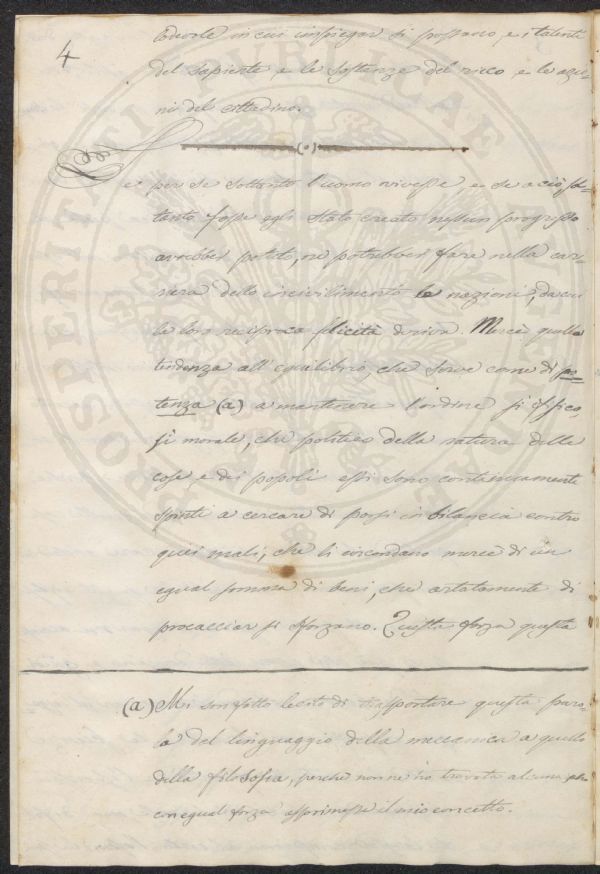 4
lodevole in cui impiegar si possano, e i talenti
del sapiente e le sostanze del ricco e le azio-
ni del cittadino.
(o)
Se per se soltanto l'uomo vivesse e se a ciò sol-
tanto fosse egli stato creato nessun progresso
avrebber potuto, ne potrebber fare nella car-
riera dello incivilimento le nazioni, da cui
la loro reciproca felicità deriva. Mercè quella
tendenza all'equilibrio, che serve come di po-
tenza (a) a mantenere l'ordine sì fisico,
sì morale, che politico della natura delle
cose e dei popoli essi sono continuamente
spinti a cercare di porsi in bilancia contro
quei mali, che li circondano mercè di un
egual somma di beni, che artatamente di
procacciar si sforzano. Questa forza questa
(a) Mi son fatto lecito di trasportare questa paro-
la del linguaggio della meccanica a quello
della filosofia, perche non ne ho trovata alcuna che
con egual forza esprimesse il mio concetto.
PROSPERITATI PUBLICAE AUGENDAE